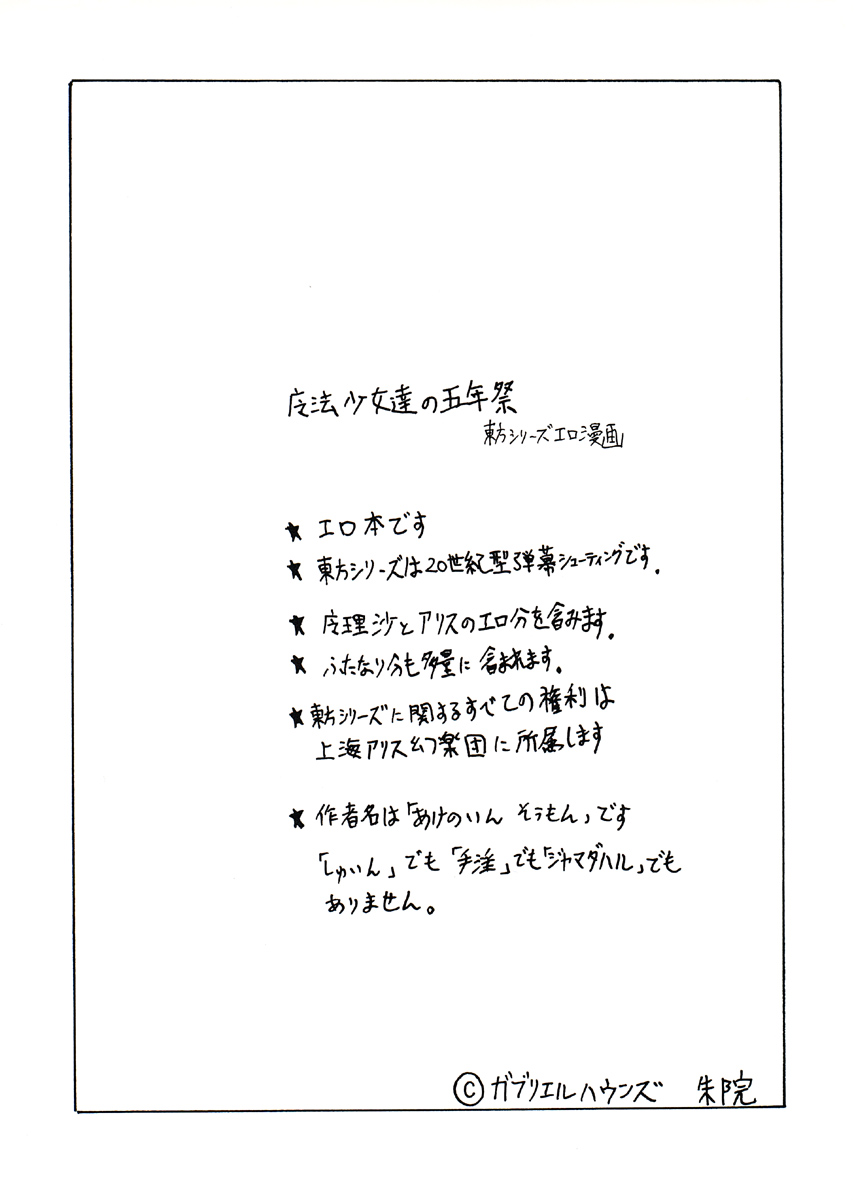 魔法少女達の五年祭
東方シリーズエロ漫画
★ エロ本です
★ 東方シリーズは20世紀型弾幕シューティングです.
★ 魔理沙とアリスのエロ分を含みます.
★ ふたなり分も多量に含まれます.
★東方シリーズに関するすべての権利は
上海アリス幻楽団に所属します
★ 作者名は「あけのいん そうもん」です
「しゅいん」でも「手淫」でも「ジャマダハル」でも
ありません。
©ガブリエルハウンズ 朱院